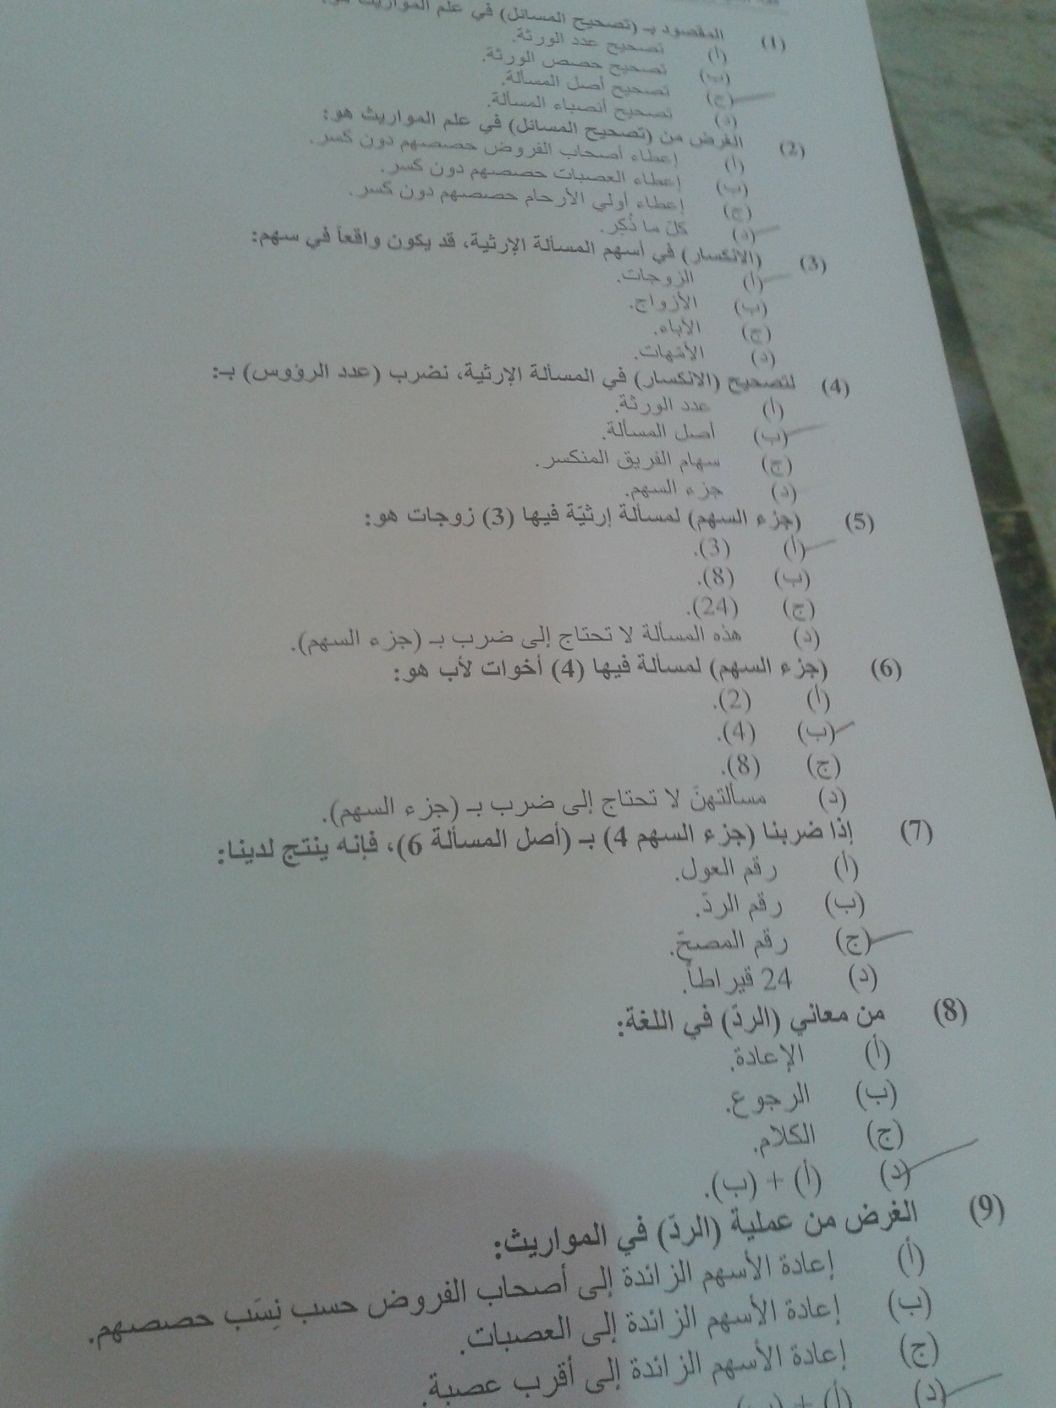 (1) المقصود بـ (تصحيح المسائل) في علم المواريث هو:
(أ) تصحيح عدد الورثة.
(ب) تصحيح حصص الورثة.
(ج) تصحيح أصل المسألة.
(د) تصحيح أنصباء المسألة.
(2) الغرض من (تصحيح المسائل) في علم المواريث هو:
(أ) إعطاء أصحاب الفروض حصصهم دون كسر.
(ب) إعطاء العصبات حصصهم دون كسر.
(ج) إعطاء أولي الأرحام حصصهم دون كسر.
(د) كلّ ما ذُكِر.
(3) (الانكسار) في أسهم المسألة الإرثية، قد يكون واقعاً في سهم:
(أ) الزوجات.
(ب) الأزواج.
(ج) الآباء.
(د) الأمّهات.
(4) لتصحيح (الانكسار) في المسألة الإرثية، نضرب (عدد الرؤوس) بـ:
(أ) عدد الورثة.
(ب) أصل المسألة.
(ج) سهام الفريق المنكسر.
(د) جزء السهم.
(5) (جزء السهم) لمسألة إرثيّة فيها (3) زوجات هو:
(أ) (3).
(ب) (8).
(ج) (24).
(د) هذه المسألة لا تحتاج إلى ضرب بـ (جزء السهم).
(6) (جزء السهم) لمسألة فيها (4) أخوات لأب هو:
(أ) (2).
(ب) (4).
(ج) (8).
(د) مسألتهنّ لا تحتاج إلى ضرب بـ (جزء السهم).
(7) إذا ضربنا (جزء السهم 4) بـ (أصل المسألة 6)، فإنه ينتج لدينا:
(أ) رقم العول.
(ب) رقم الردّ.
(ج) رقم المصحّ.
(د) 24 قيراطاً.
(8) من معاني (الردّ) في اللغة:
(أ) الإعادة.
(ب) الرجوع.
(ج) الكلام.
(د) (أ) + (ب).
(9) الغرض من عملية (الردّ) في المواريث:
(أ) إعادة الأسهم الزائدة إلى أصحاب الفروض حسب نِسَب حصصهم.
(ب) إعادة الأسهم الزائدة إلى العصبات.
(ج) إعادة الأسهم الزائدة إلى أقرب عصبة.
(د) (أ) + (ب)